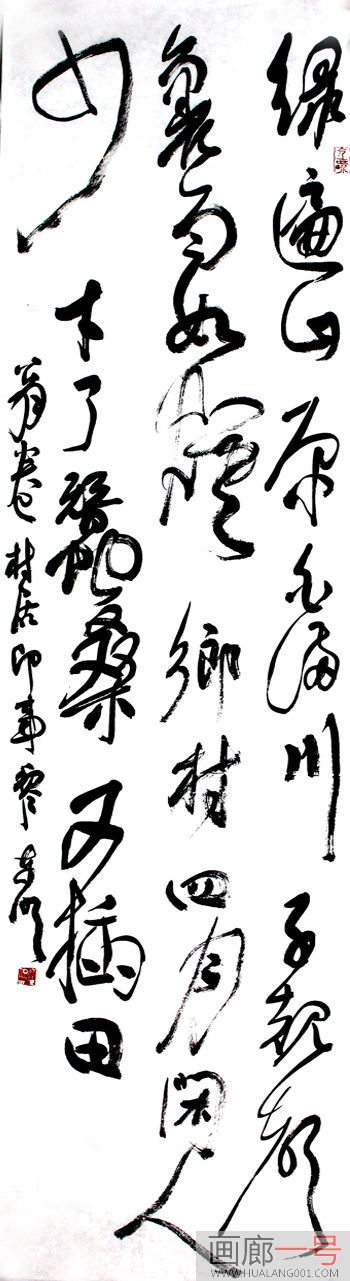 緑遍山原白滿川子規聲
裏雨如煙鄉村四月閑人
少才了蠶桑又插田
翁卷村居即事
画廊一号
WWW.HUALANG001.COM